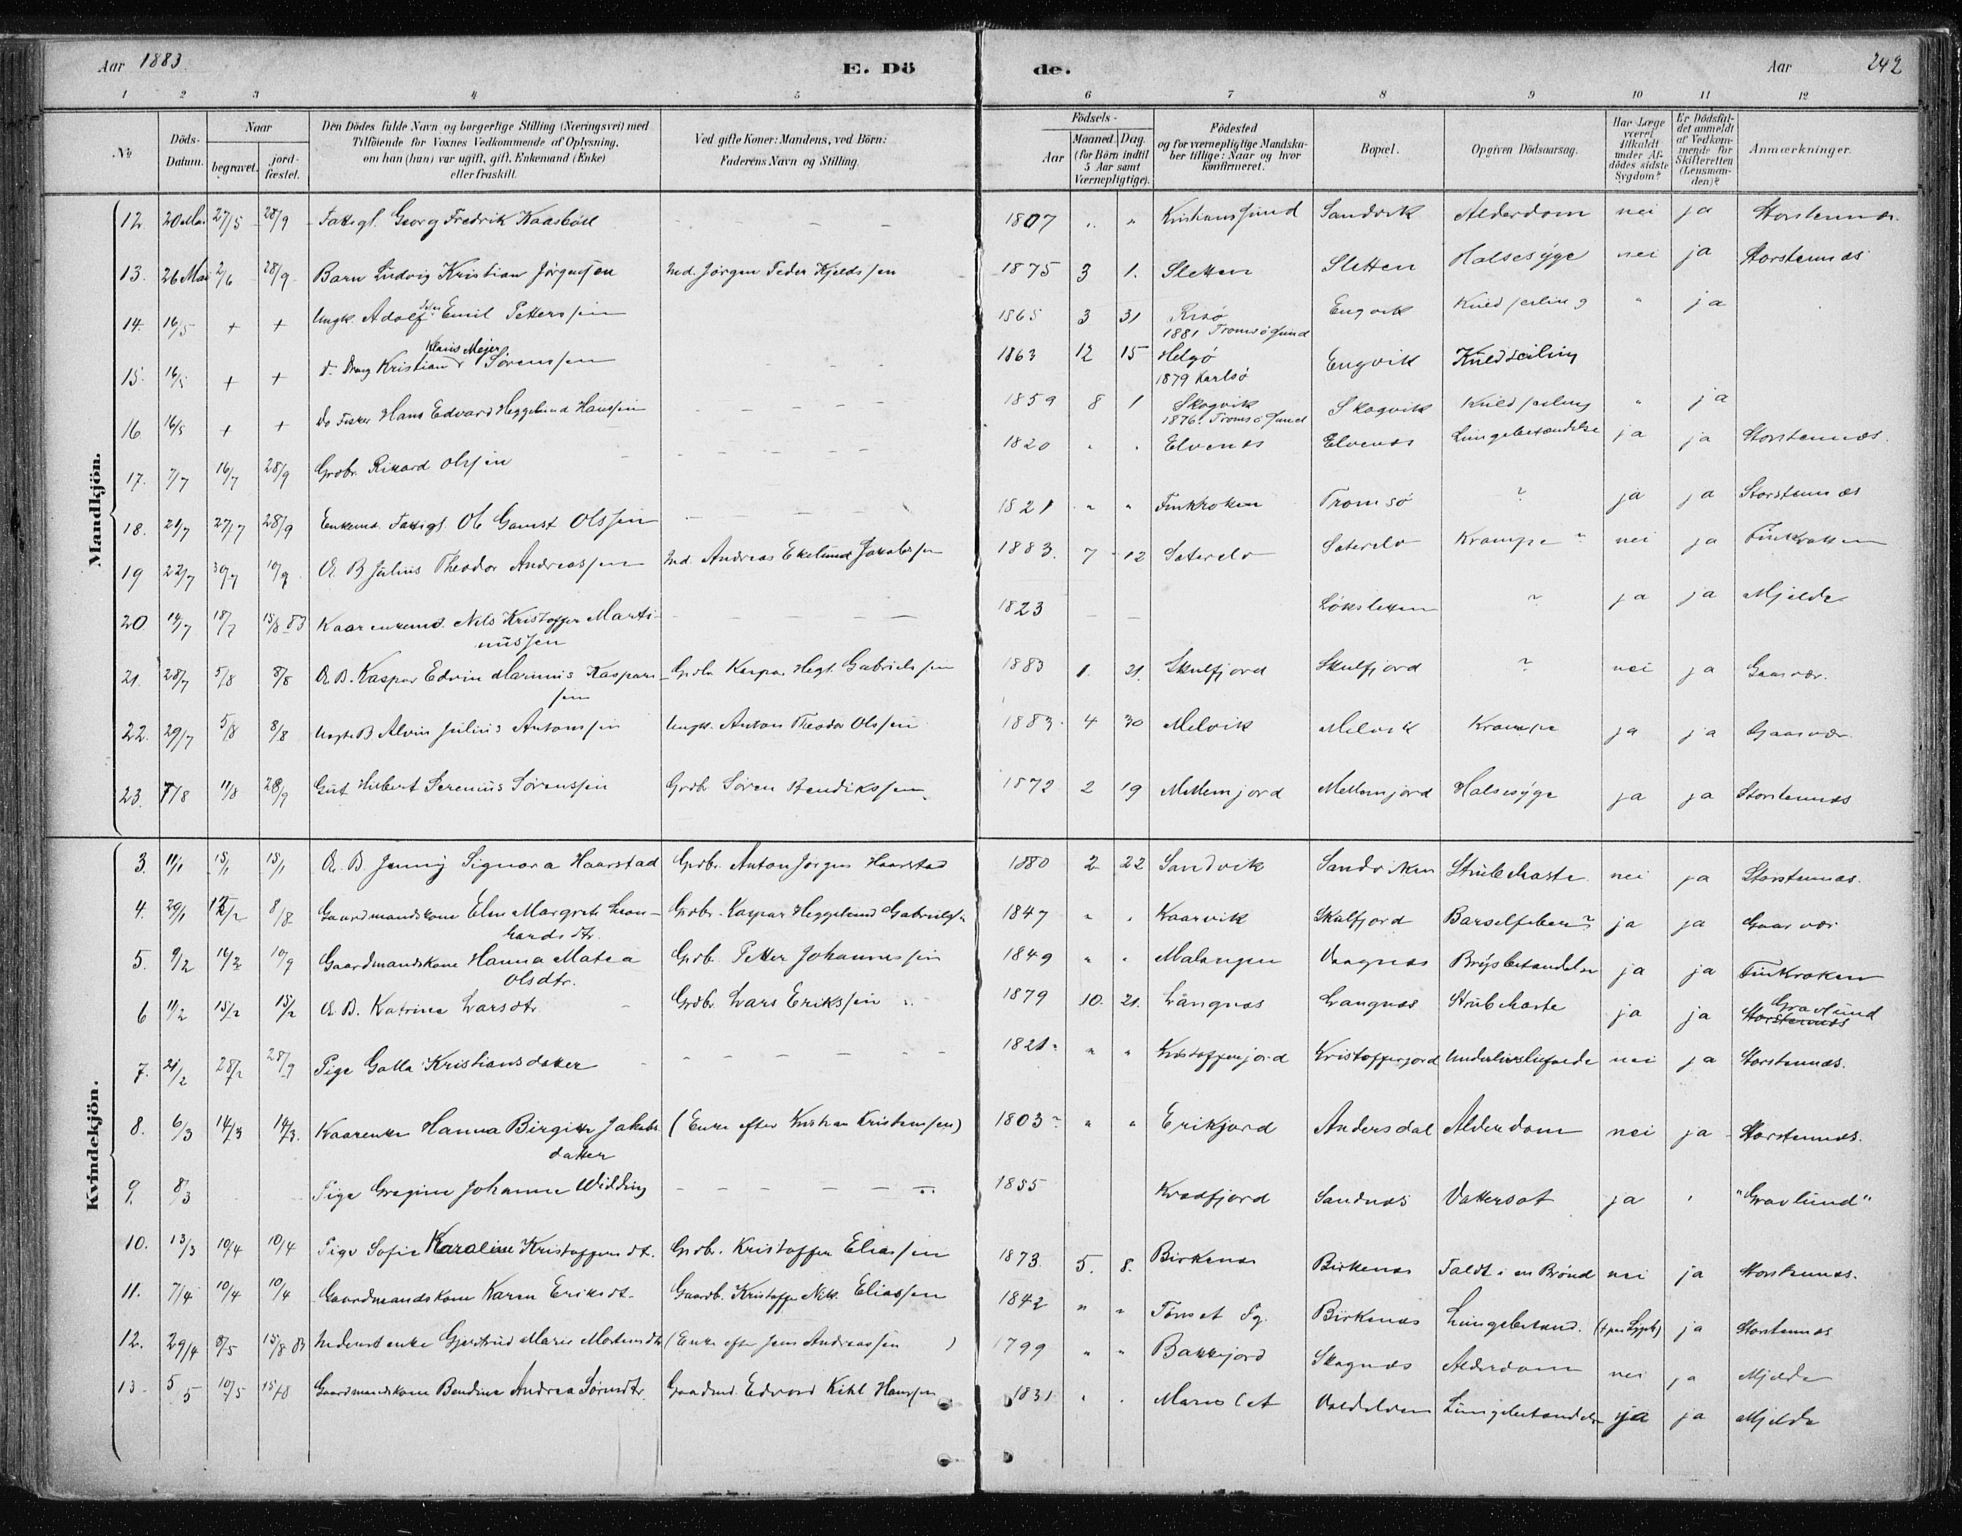 Aar 1883.
E. Dö
de.
Aar
242
1 2 3 4 5 6 7 8 9 10 11 12
No
Döds-Datum.
Naar
begravet.
jord-fæstet.
Den Dödes fulde Navn og borgerlige Stilling (Næringsvei) med
Tilföiende för Voxnes Vedkommende af Oplysning,
om han (hun) var ugift, gift, Enkemand (Enke)
eller fraskilt.
Ved gifte Koner: Mandens, ved Börn:
Faderens Navn og Stilling.
Födsels-
Aar
Maaned. Dag.
(for Börn indtil
5 Aar samt
Værnepligtige).
Födested
og for værnepligtige Mandska-
ber tillige: Naar og hvor
konfirmeret.
Bopæl.
Opgiven Dödsaarsag.
Har Læge
været
tilkaldt
under Af-
dödes sidste
Sygdom?
Er Dödsfal-
det anmeldt
af Vedkom-
mende for
Skifteretten
(Lensman-
den)?
Anmærkninger.
Mandkjön.
12. 20 Mai 27/5 28/9 Fattigl. Georg Fredrik Kaasböll - - 1807 " " Kristianssund Sandvik Alderdom nei ja Storstennæs.
13. 26 Mai 2/6 28/9 Barn Ludvig Kristian Jørgenssen Ind. Jørgen Peder Kjeldssen 1875 3 1. Sletten Sletten Halsesyge nei ja Storstennæs
14. 16/5 + + Ungk. Adolf Emil Petterssen 1865 3 31 Risø
1881 Tromsøsund Engvik Kuldseiling " ja
15. 16/5 + + d. Dreng Kristian Klaus Mejer Sørenssen 1863 12 15 Helgø
1879 Karlsø Engvik Kuldseiling
16. 16/5 + + Do Fisker Hans Edvard Heggelund Hanssen - - - - - 1859 8 1 Skogvik
1876. Tromsøsund Skogvik Kuldseiling " ja
17. 7/7 16/7 28/9 Grdbr. Rikard Olssen - - - - - 1820 " " Elvenæs Elvenæs Lungebetændelse ja ja Storstennæs.
18. 21/7 27/7 28/9 Enkemd. Fattigl. Ole Gamst Olssen - - - - 1821 " " Finkroken Tromsø ? ja ja Storstennæs
19 22/7 30/7 10/9 Æ. B. Julius Theodor Andreassen Ind. Andreas Ekelund Jakobssen 1883. 7 12 Sætrelv Sætrelv Krampe ? nei ja Finkroken
20 14/7 18/7 15/8 83 Kaarenkemd. Nils Kristoffer Marti-
nussen - - - - 1823 - - Løksletten ? ja ja Mjelde
21. 28/7 5/8 8/8 Æ. B. Kaspar Edvin Marinius Kaspars-
sen Grdbr. Kaspar Hegl. Gabrielssen 1883 1. 21. Skulfjord Skulfjord ? nei ja Gaasvær.
22. 29/7 5/8 8/8 Uægte B Alvin Julius Antonssen Ungk. Anton Theodor Olssen 1883. 4 30 Melvik Melvik Krampe ja ja Gaasvær
23. 7/8 11/8 28/9 Gut Hilbert Serenius Sørenssen Grdbr Søren Bendikssen. 1872 2 19 Mellemjord Mellemjord Halsesyge ja ja Storstennæs
Kvindekjön.
3. 11/1 15/1 15/1 Æ. B. Jenny Signora Haarstad Grdbr. Anton Jørgen Haarstad 1880 2 22 Sandvik Sandviken Strubehoste nei ja Storstennæs.
4. 29/1 12/2 8/8 Gaardmandskone Elen Margrete Leon-
hardsdtr. Grdbr. Kaspar Heggelund Gabrielss. 1847 " " Kaarvik Skulfjord Barselfeber ? ja ja Gaasvær
5. 9/2 16/2 10/9 Gaardmandskone Hanna Matea
Olsdtr. Grdb. Petter Johannessen 1849 " " Malangen Vaagnæs Brystbetændelse ja ja Finkroken
6 11/2 15/2 15/2 Æ. B. Katrine Larsdtr. Grdbr Lars Erikssen 1879 10. 21. Langnæs Langnæs Strubehoste ja ja Gravlund
Storstennæs
7. 21/2 28/2 28/9 Pige Golla Kristiansdatter - - - - - - 1821 " " Kristofferjord Kristofferjord Underlivslidelse nei ja Storstennæs.
8. 6/3 14/3 14/3. Kaarenke Hanna Birgitte Jakobs-
datter (Enke efter Kristian Kristenssen) 1803 " " Erikjord Andersdal Alderdom nei ja Storstennæs.
9. 8/3 Pige Gregine Johanne Widding - - - - - 1855 Kvalfjord Sandnæs Vattersot ja "Gravlund"
10. 13/3 10/4 10/4 Pige Sofie Karoline Kristoffersdt. Grdbr. Kristoffer Eliassen 1873. 5. 8. Birkenæs Birkenæs Faldt i en Brønd nei ja Storstennæs.
11. 7/4 10/4 10/4 Gaardmandskone Karen Eriksdt. Gaardb. Kristoffer Nik. Eliassen 1842 " " Tønset Pg. Birkenæs Lungebetænd. ja Storstennæs
12. 29/4 8/5 15/8 83 Inderst enke Gjertrud Marie Mortensdtr (Enke efter Jens Andreassen ) 1799 " " Bakkejord Skognæs Alderdom nei ja Mjelde
13. 5/5 10/5 15/8 Gaardmandskone Bendine Andrea Sørensdtr. Gaardmd. Edvard Kihl Hanssen 1831 " " Marislet Lungebetændelse ja ja Mjelde